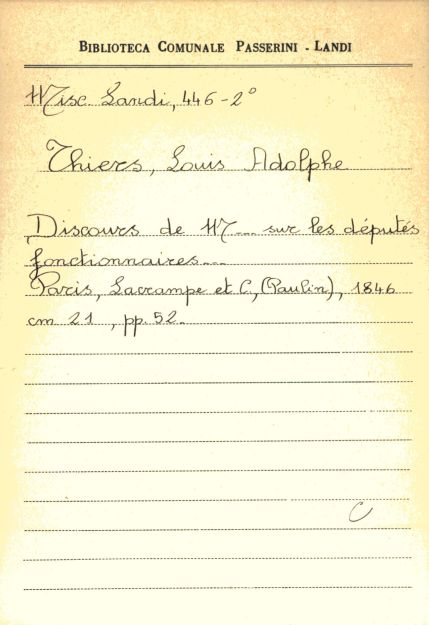 BIBLIOTECA COMUNALE PASSERINI - LANDI
Misc. Landi, 446-2°
Thiers, Louis Adolphe
Discours de M... sur les députés
fonctionnaires...
Paris, Lacrampe et C., (Paulin), 1846
cm 21, pp. 52.
C